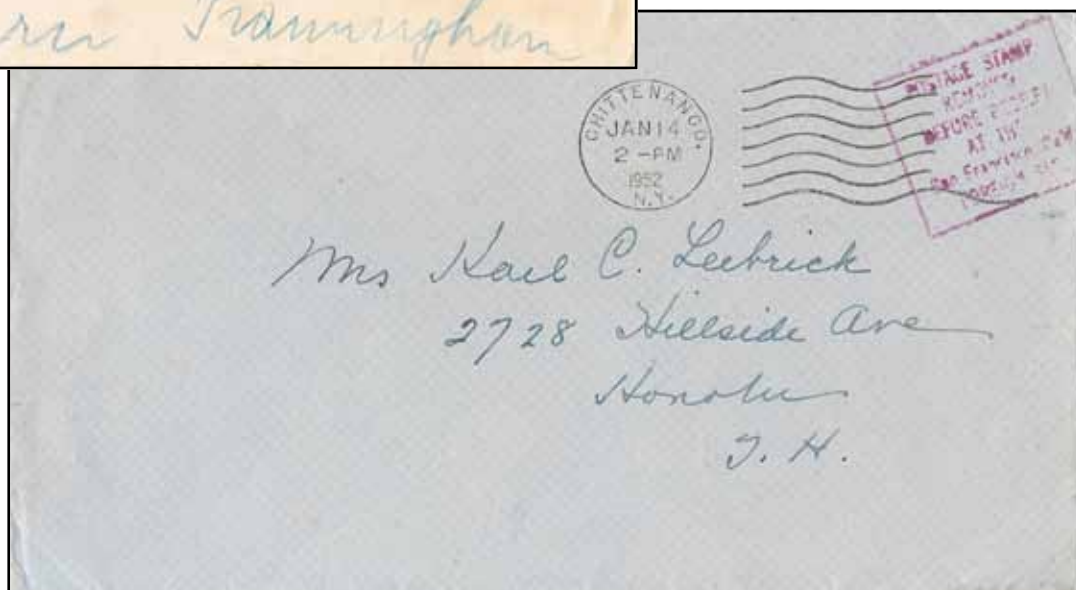 Framingham
CHITTENANGO.
JAN 14
2 - PM
1952
N.Y.
POSTAGE STAMP
REMOVED
BEFORE RECEIPT
AT THE
San Francisco, Calif.
FOREIGN
Mrs Karl C. Leebrick
2728 Hillside Ave
Honolu
T. H.